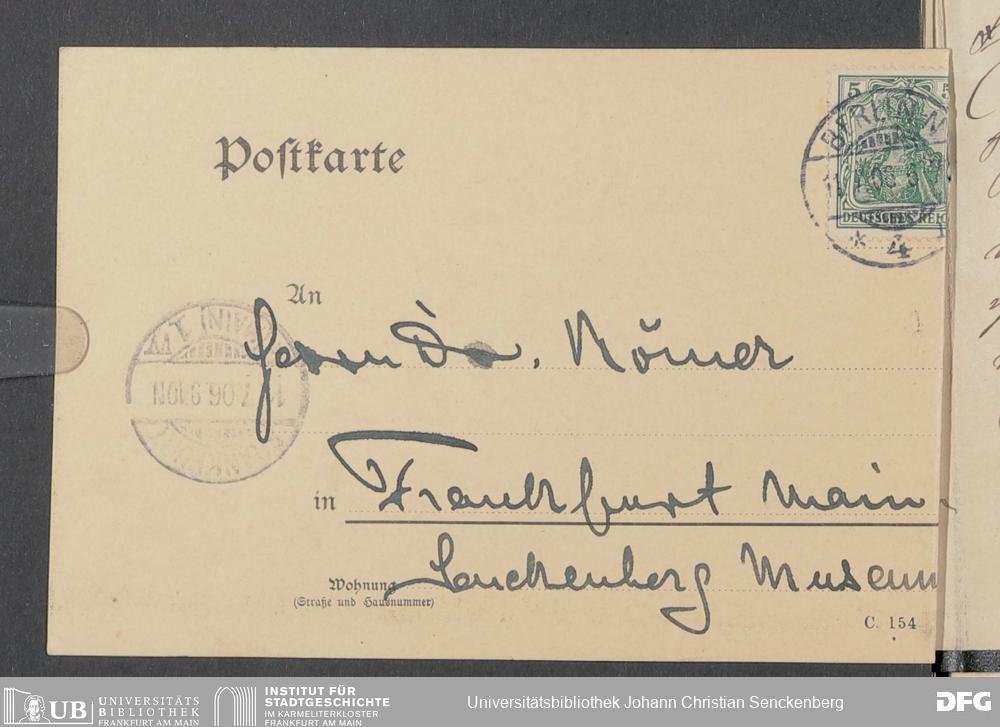 Postkarte
5 5
BERLIN N
06
DEUTSCHES REIC
* 4
An
Herrn Dr. Römer
7.06.9-10N
in Frankfurt Main
Senckenberg Museum
Wohnung
(Straße und Hausnummer)
C. 154
UB UNIVERSITÄTS
BIBLIOTHEK
FRANKFURT AM MAIN
INSTITUT FÜR
STADTGESCHICHTE
IM KARMELITERKLOSTER
FRANKFURT AM MAIN
Universitätsbibliothek Johann Christian Senckenberg
DFG